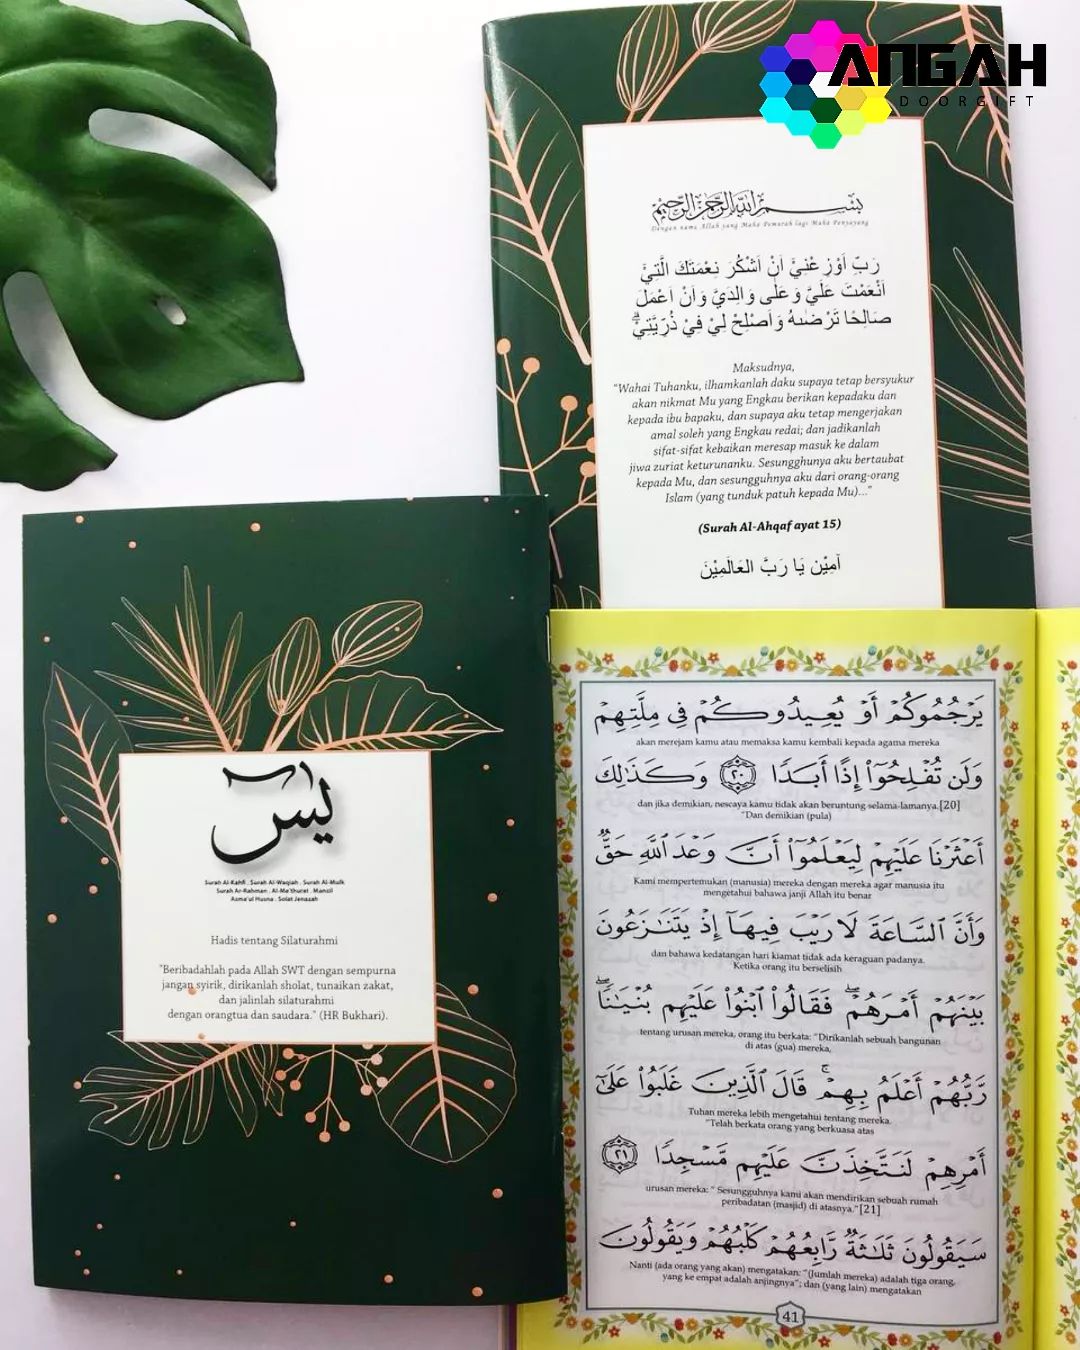 ANGAH
DOORGIFT
بِسْمِ اللَّهِ الرَّحْمَٰنِ الرَّحِيمِ
Dengan nama Allah yang Maha Pemurah lagi Maha Penyayang
رَبِّ اَوْزِعْنِيْٓ اَنْ اَشْكُرَ نِعْمَتَكَ الَّتِيْٓ
اَنْعَمْتَ عَلَيَّ وَعَلٰى وَالِدَيَّ وَاَنْ اَعْمَلَ
صَالِحًا تَرْضٰىهُ وَاَصْلِحْ لِيْ فِيْ ذُرِّيَّتِيْۗ
Maksudnya,
"Wahai Tuhanku, ilhamkanlah daku supaya tetap bersyukur
akan nikmat Mu yang Engkau berikan kepadaku dan
kepada ibu bapaku, dan supaya aku tetap mengerjakan
amal soleh yang Engkau redai; dan jadikanlah
sifat-sifat kebaikan meresap masuk ke dalam
jiwa zuriat keturunanku. Sesungghunya aku bertaubat
kepada Mu, dan sesungguhnya aku dari orang-orang
Islam (yang tunduk patuh kepada Mu)..."
(Surah Al-Ahqaf ayat 15)
آمِيْن يَا رَبَّ العَالَمِيْنَ
يس
Surah Al-Kahfi . Surah Al-Waqiah . Surah Al-Mulk
Surah Ar-Rahman . Al-Ma'thurat . Manzil
Asma'ul Husna . Solat Jenazah
Hadis tentang Silaturahmi
"Beribadahlah pada Allah SWT dengan sempurna
jangan syirik, dirikanlah sholat, tunaikan zakat,
dan jalinlah silaturahmi
dengan orangtua dan saudara." (HR Bukhari).
يَرْجُمُوكُمْ أَوْ يُعِيدُوكُمْ فِى مِلَّتِهِمْ
akan merejam kamu atau memaksa kamu kembali kepada agama mereka
وَلَن تُفْلِحُوٓا۟ إِذًا أَبَدًا ٢٠ وَكَذَٰلِكَ
dan jika demikian, nescaya kamu tidak akan beruntung selama-lamanya.[20]
"Dan demikian (pula)
أَعْثَرْنَا عَلَيْهِمْ لِيَعْلَمُوٓا۟ أَنَّ وَعْدَ ٱللَّهِ حَقٌّ
Kami mempertemukan (manusia) mereka dengan mereka agar manusia itu
mengetahui bahawa janji Allah itu benar
وَأَنَّ ٱلسَّاعَةَ لَا رَيْبَ فِيهَآ إِذْ يَتَنَٰزَعُونَ
dan bahawa kedatangan hari kiamat tidak ada keraguan padanya.
Ketika orang itu berselisih
بَيْنَهُمْ أَمْرَهُمْ ۖ فَقَالُوا۟ ٱبْنُوا۟ عَلَيْهِم بُنْيَٰنًا ۖ
tentang urusan mereka, orang itu berkata: "Dirikanlah sebuah bangunan
di atas (gua) mereka,
رَّبُّهُمْ أَعْلَمُ بِهِمْ ۚ قَالَ ٱلَّذِينَ غَلَبُوا۟ عَلَىٰٓ
Tuhan mereka lebih mengetahui tentang mereka.
"Telah berkata orang yang berkuasa atas
أَمْرِهِمْ لَنَتَّخِذَنَّ عَلَيْهِم مَّسْجِدًا ٢١
urusan mereka: " Sesungguhnya kami akan mendirikan sebuah rumah
peribadatan (masjid) di atasnya."[21]
سَيَقُولُونَ ثَلَٰثَةٌ رَّابِعُهُمْ كَلْبُهُمْ وَيَقُولُونَ
Nanti (ada orang yang akan) mengatakan: "(Jumlah mereka) adalah tiga orang,
yang ke empat adalah anjingnya"; dan (yang lain) mengatakan
41